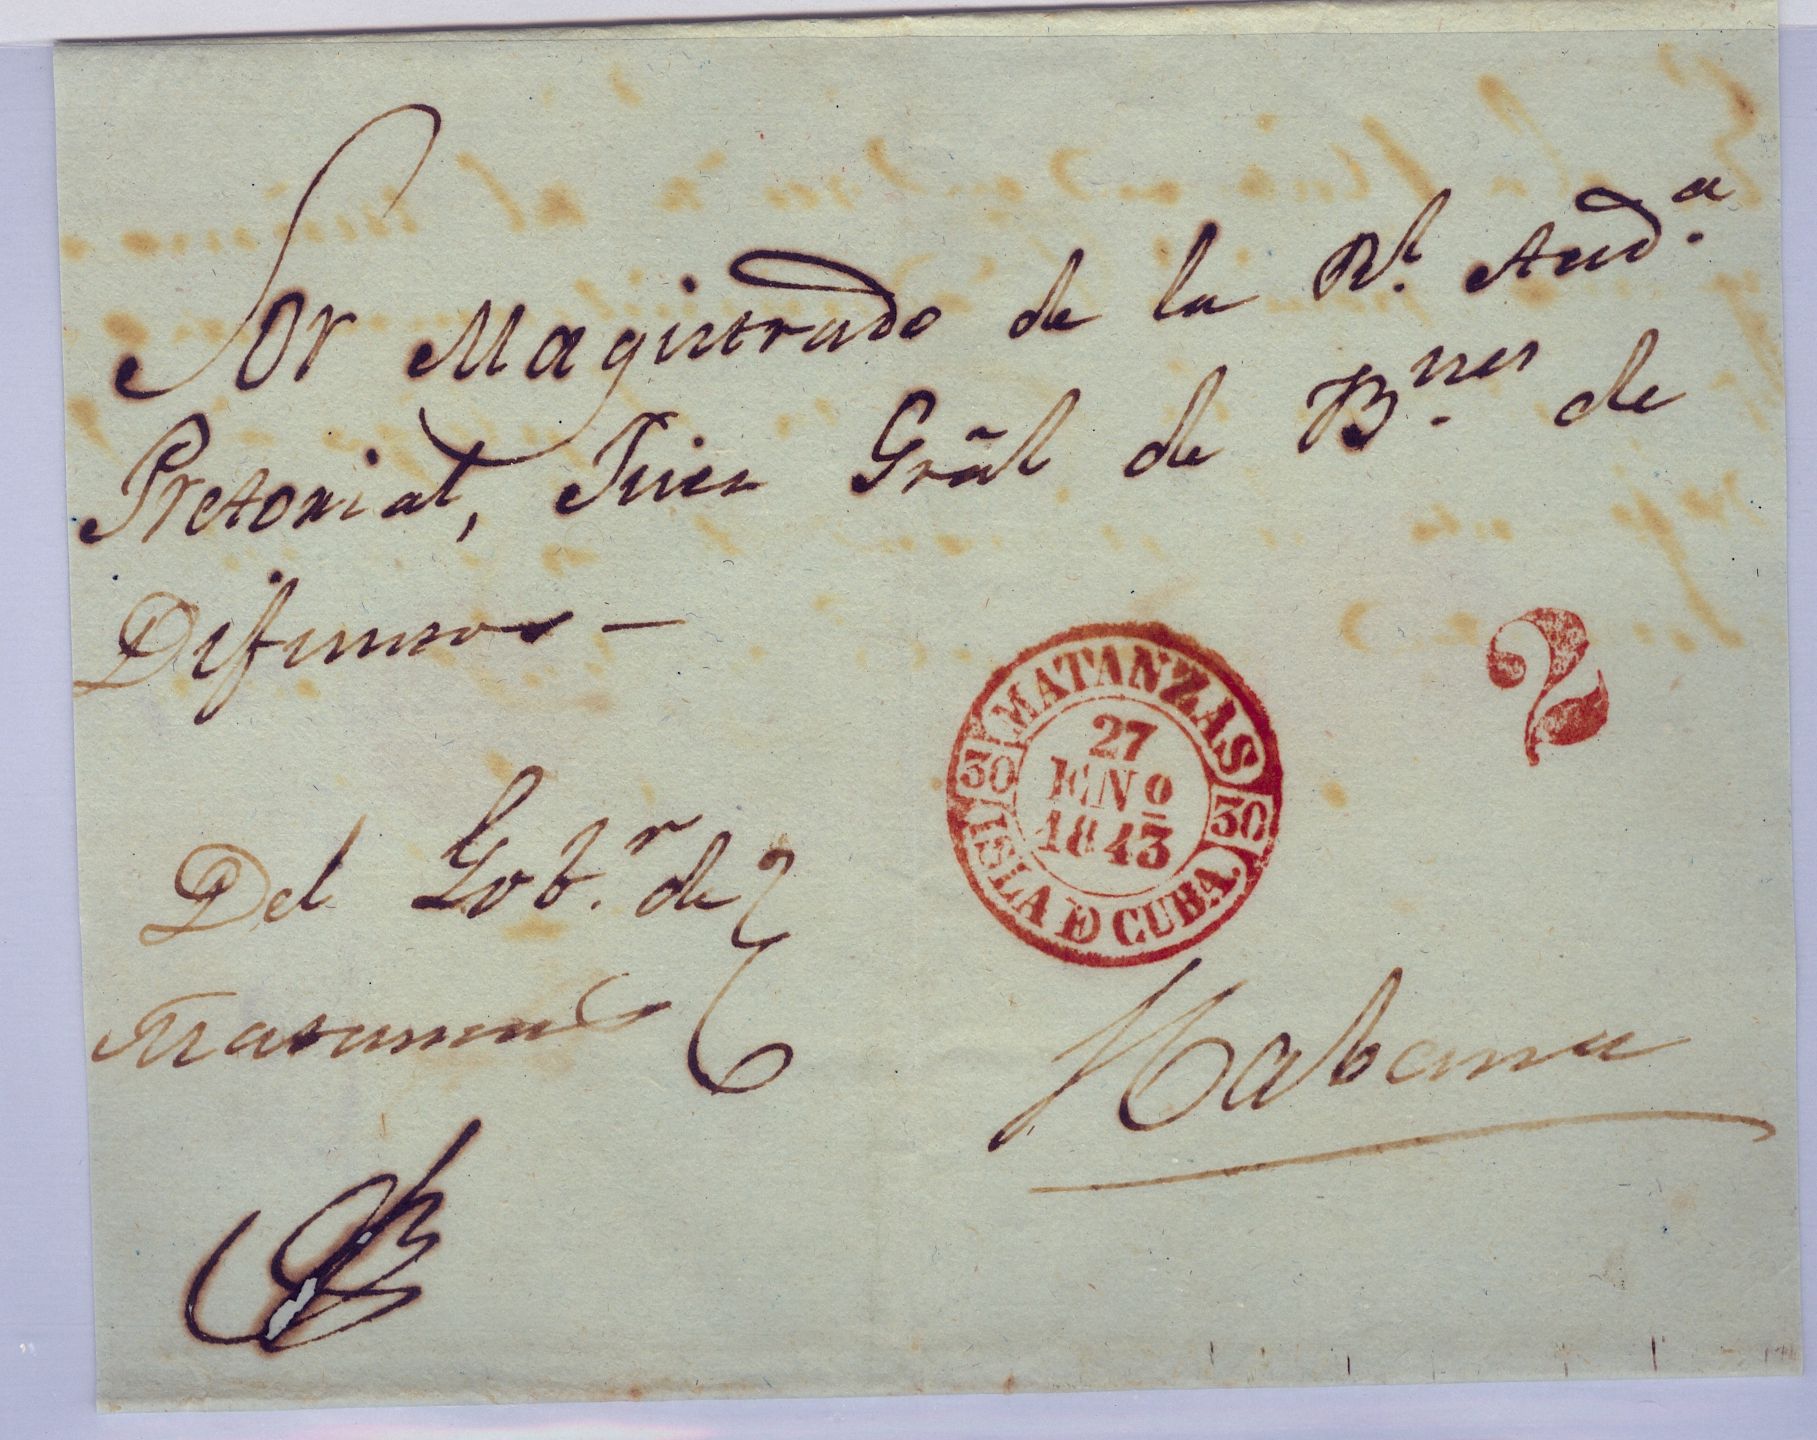 Sor Magistrado de la Rl. Aud.a
Pretorial, Juez Grãl de B.nes de
Difuntos —
2
MATANZAS
27
ENº
1843
30 30
ISLA DE CUBA.
Del Gob.r de
Matanzas
Habana